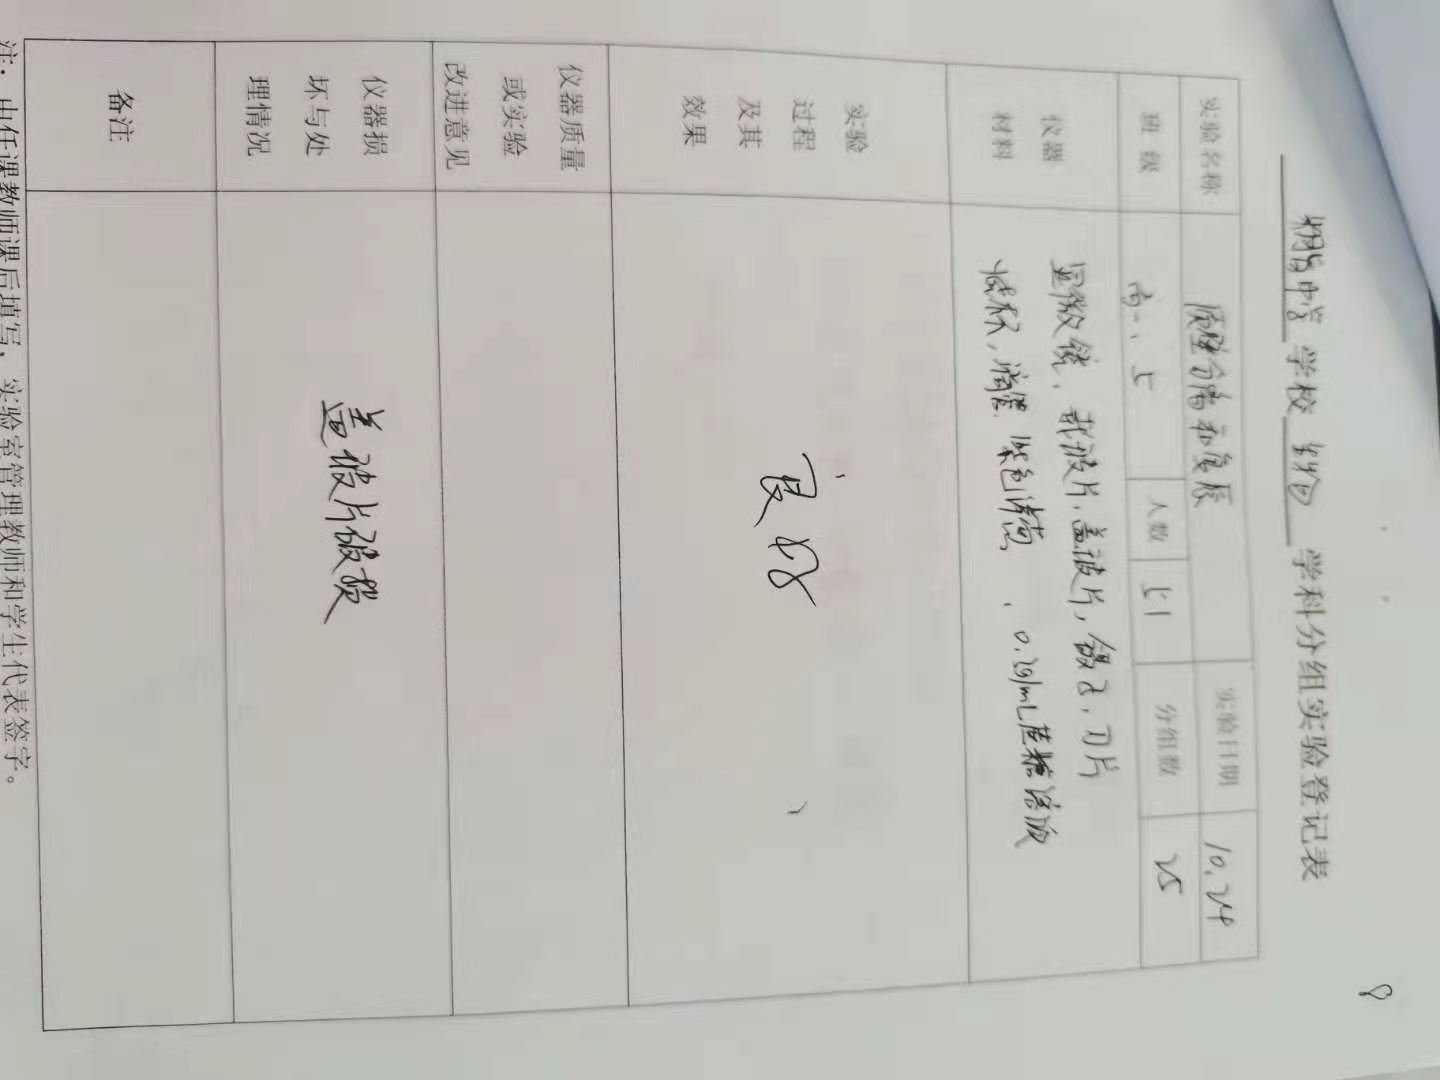 中学 学校 生物 学科分组实验登记表
实验名称 质壁分离和复原 实验日期 10.24
班 级 高一.5 人数 51 分组数 25
仪器 显微镜、载玻片、盖玻片,镊子、刀片
材料 吸水纸,滴管 紫色洋葱 、0.3g/mL蔗糖溶液
实验
过程
及其
效果
良好
仪器质量
或实验
改进意见
仪器损
坏与处
理情况
盖玻片破损
备注
注:由任课教师课后填写,实验室管理教师和学生代表签字。
8